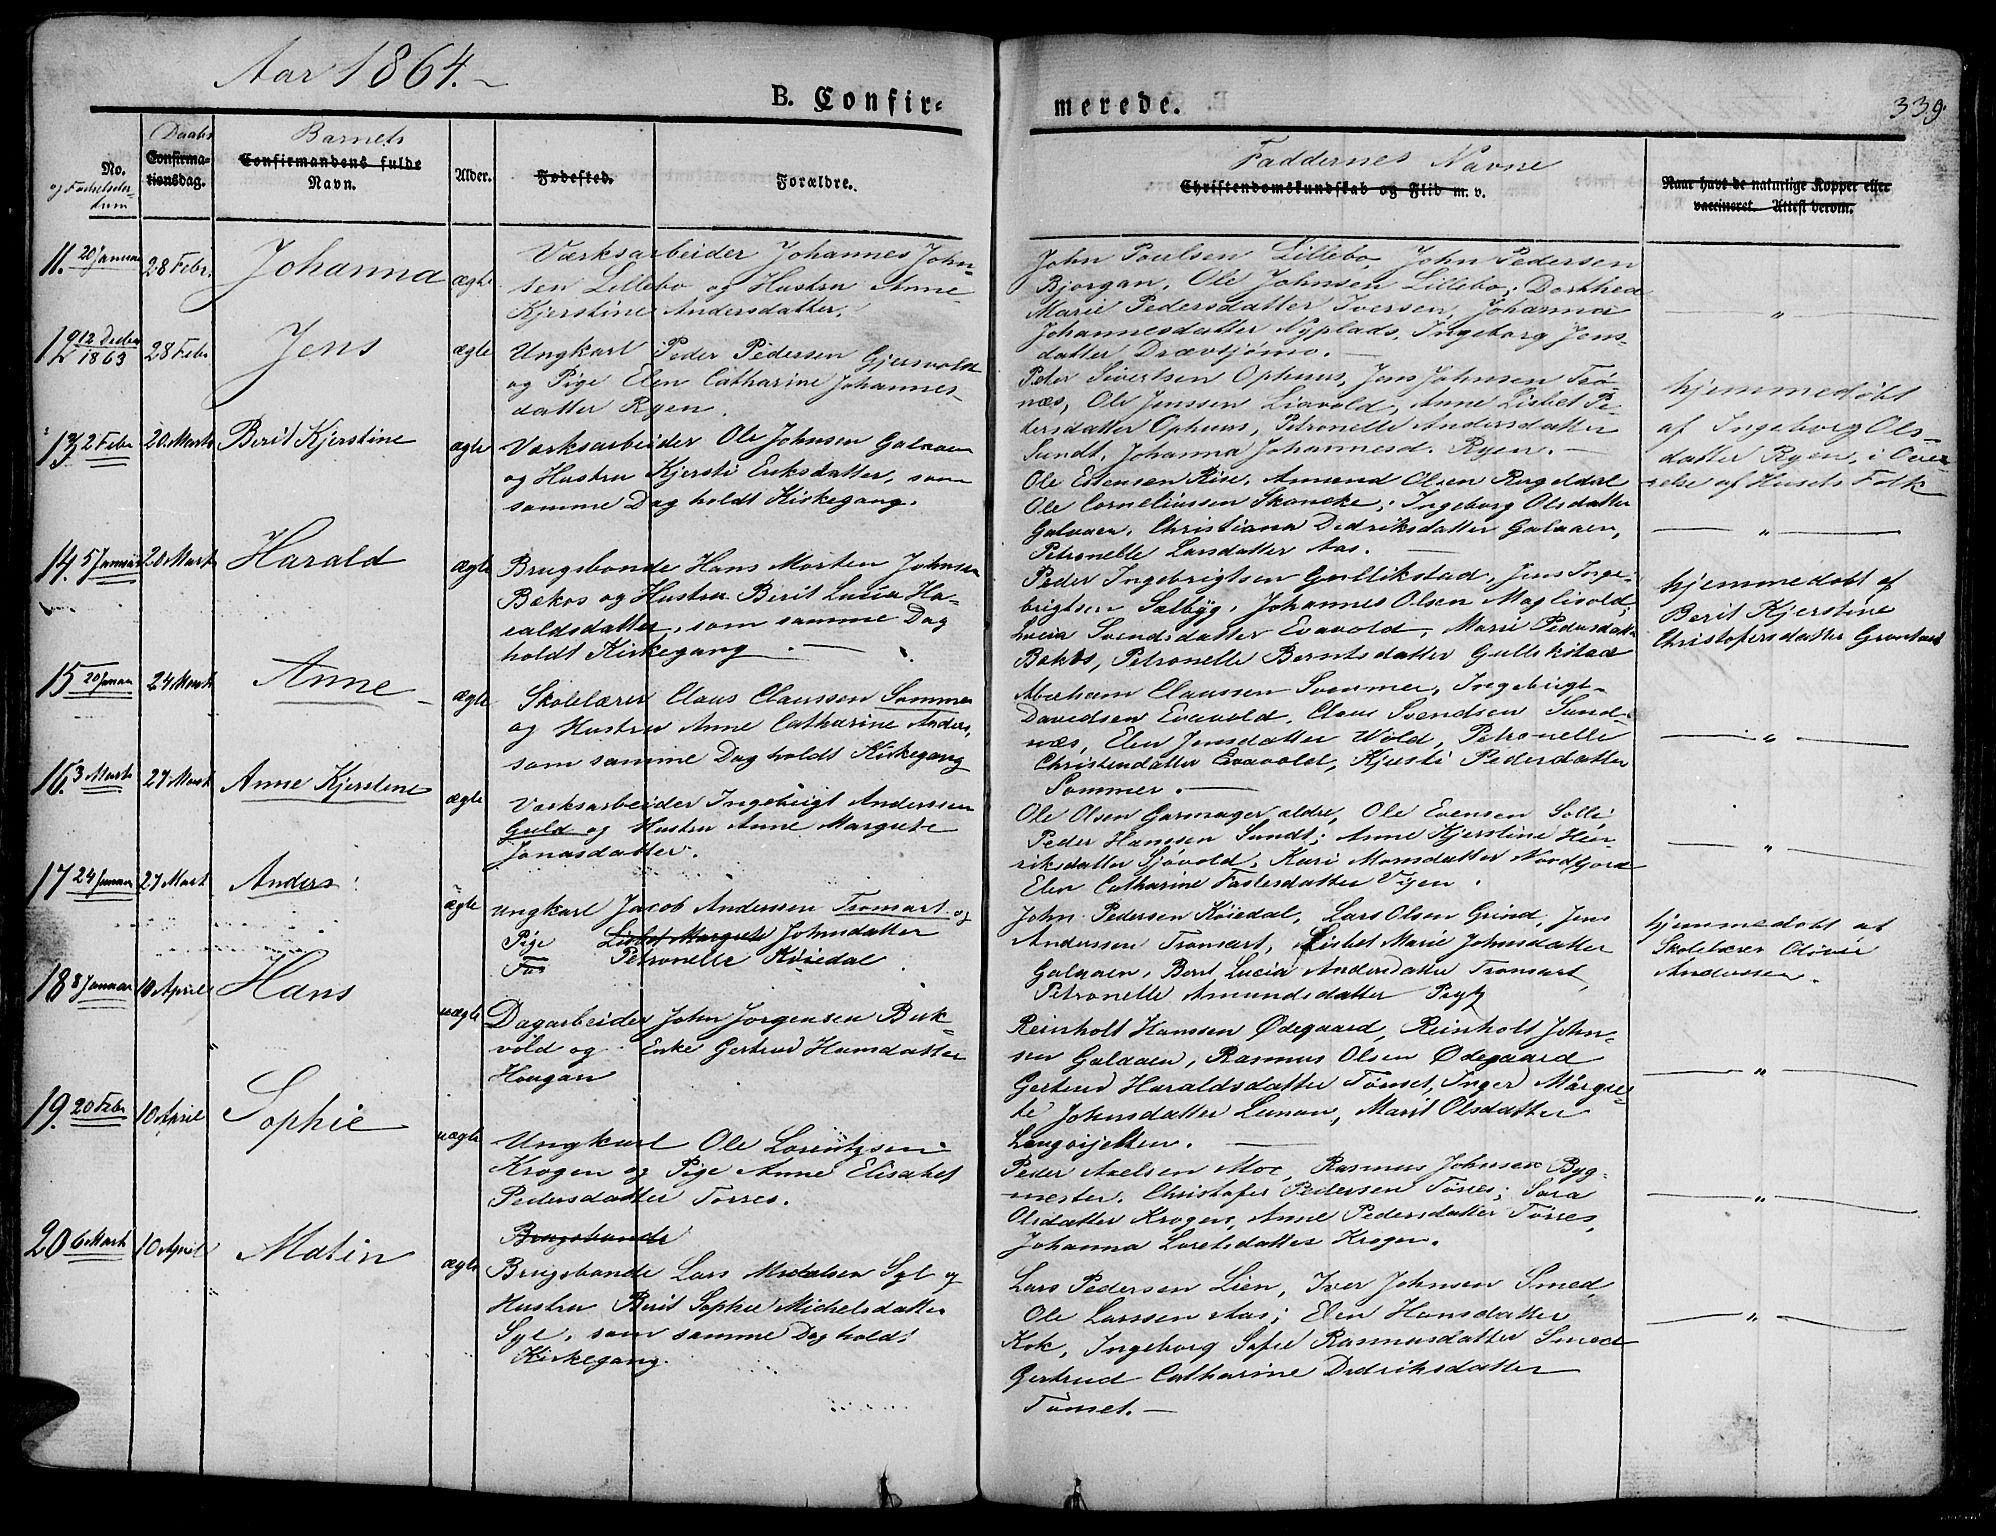 Aar 1864.
B. Confir-
merede.
339.
No.
og Fødselsda-
tum
Daabs
Confirma-
tionsdag.
Barnets
Confirmandens fulde
Navn.
Alder.
Fødested.
Forældre.
Faddernes Navne
Christendomskundskab og Flid m. v.
Naar havt de naturlige Kopper eller
vaccineret. Attest derom.
11. 20 Januar
28 Febr.
Johanna
ægte
Værksarbeider Johannes John-
sen Lillebo og Hustru Anne
Kjerstine Andersdatter.
John Poulsen Lillebo, John Pedersen
Bjorgan, Ole Johnsen Lillebo; Dorthea
Marie Pedersdatter Iversen, Johanna
Johannesdatter Nyplads, Ingeborg Jens-
datter Drævsjømo.
"
12 12 Decbr
1863
28 Febr
Jens
ægte
Ungkarl Peder Pedersen Gjersvold
og Pige Elen Catharine Johannes-
datter Ryen.
Peter Sivertsen Ophuus, Jens Johnsen Trø-
næs, Ole Jenssen Liavold, Anne Lisbet Pe-
dersdatter Ophuus, Petronelle Andersdatter
Sundt, Johanna Johannesd. Ryen.
hjemmedøbt
af Ingeborg Ols-
datter Ryen, i Over-
relse af Husets Folk
13 2 Febr
20 Marts
Berit Kjerstine
ægte
Værksarbeider Ole Johnsen Galaaen
og Hustru Kjersti Eriksdatter, som
samme Dag holdt Kirkegang.
Ole Estensen Rise, Amund Olsen Rugeldal
Ole Corneliussen Skancke; Ingeborg Olsdatter
Galaaen, Christiana Didriksdatter Galaaen,
Petronelle Larsdatter Aas.
"
14. 5 Januar
20 Mart
Harald
ægte
Brugsbonde Hans Morten Johnsen
Bækos og Hustru Berit Lucia Ha-
raldsdatter, som samme Dag
holdt Kirkegang.
Peder Ingebrigtsen Gullikstad, Jens Inge-
brigtsen Sælbyg, Johannes Olsen Moglivold;
Lucia Svendsdatter Evavold, Marie Pedersdatter
Bækos, Petronelle Berntsdatter Gullikstad
hjemmedøbt af
Berit Kjerstine
Christofersdatter Grøntaas
15 20 Januar
24 Mart
Anne
ægte
Skolelærer Claus Claussen Sommer
og Hustru Anne Catharine Anders,
som samme Dag holdt Kirkegang
Abraham Claussen Sommer, Ingebrigt
Davidsen Evavold, Claus Svendsen Sund-
næs, Elen Jensdatter Wold, Petronelle
Christendatter Evavold, Kjersti Pedersdatter
Sommer.
"
16. 3 Marts
27 Mart
Anne Kjerstine
ægte
Værksarbeider Ingebrigt Anderssen
Guld og Hustru Anne Margrete
Jonasdatter.
Ole Olsen Garmager ældre, Ole Evensen Solli
Peder Hanssen Sundt; Anne Kjerstine Hen-
riksdatter Sjøvold, Kari Monsdatter Nordfjord
Elen Catharine Fastesdatter Vijen.
"
17 24 Januar
27 Mart
Anders
ægte
Ungkarl Jacob Anderssen Tronsart og
Pige Lisbet Margrete Johnsdatter
Petronelle Køiedal
John Pedersen Køiedal, Lars Olsen Grind, Jens
Anderssen Tronsart, Lisbet Marie Johnsdatter
Galaaen, Berit Lucia Andersdatter Tronsart,
Petronelle Amundsdatter Prytz
hjemmedøbt af
Skolelærer
Anderssen.
18 8 Januar
10 April
Hans
uægte
Dagarbeider John Jørgensen Buk-
vold og Enke Gertrud Hansdatter
Hougan
Reinholt Hanssen Ødegaard, Reinholt John-
sen Galaaen, Rasmus Olsen Ødegaard
Gertrud Haraldsdatter Tønset, Inger Margre-
te Johnsdatter Lunan, Marit Olsdatter
Langvijetten.
"
19. 20 Febr
10 April
Sophie
uægte
Ungkarl Ole Lorentzsen
Krogen og Pige Anne Elisabet
Pedersdatter Torres.
Peder Axelsen Moe, Rasmus Johnsen Byg-
mester, Christofer Pedersen Torres; Sara
Olsdatter Krogen, Anne Pedersdatter Torres,
Johanna Loretsdatter Krogen.
"
20 6 Mart
10 April
Matin
ægte
Brugsbonde
Brugsbonde Lars Mickelsen Syl og
Hustru Berit Sophie Michelsdatter
Syl, som samme Dag holdt
Kirkegang.
Lars Pedersen Lien, Iver Johnsen Smed,
Ole Larssen Aas; Elen Hansdatter
Kok, Ingeborg Sofie Rasmusdatter Smed
Gertrud Catharine Didriksdatter
Tønset.
"